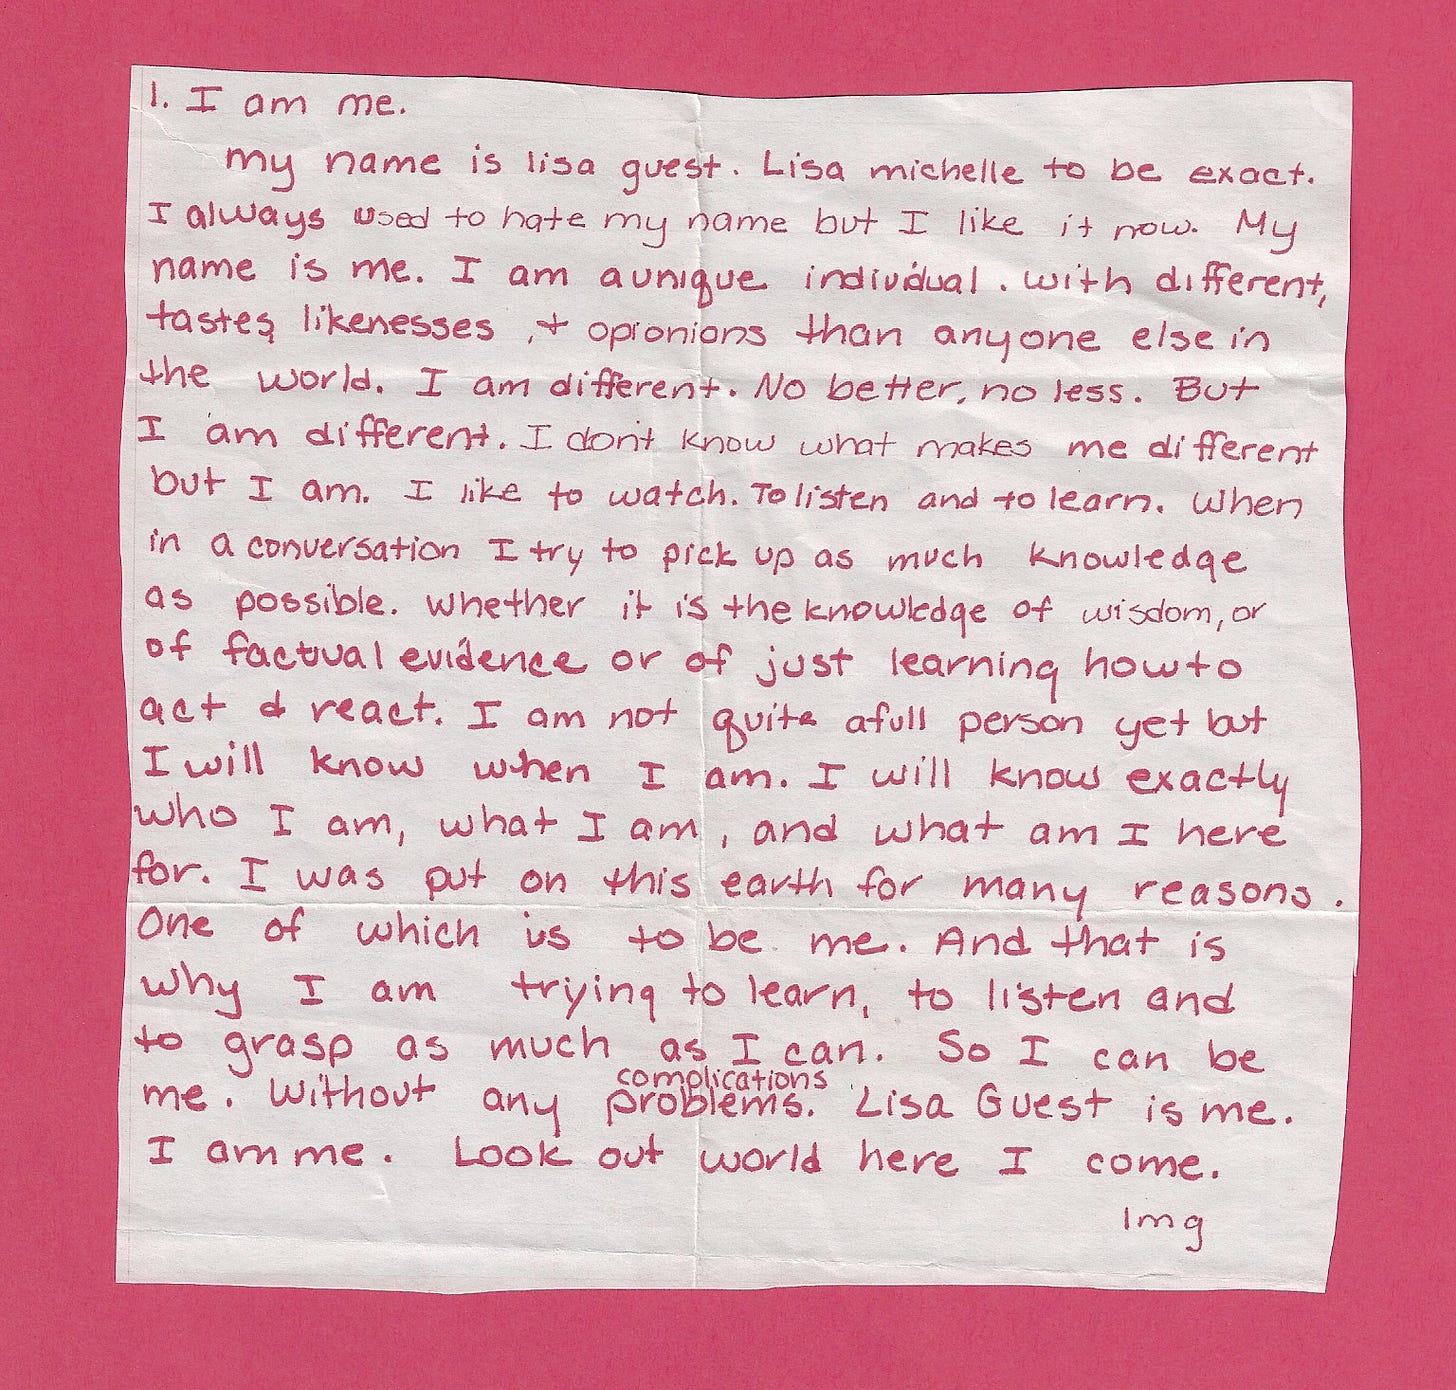 1. I am me.
my name is lisa guest. Lisa michelle to be exact.
I always used to hate my name but I like it now. My
name is me. I am a unique individual. with different,
tastes, likenesses, + opionions than anyone else in
the world. I am different. No better, no less. But
I am different. I don't know what makes me different
but I am. I like to watch. To listen and to learn. When
in a conversation I try to pick up as much knowledge
as possible. Whether it is the knowledge of wisdom, or
of factual evidence or of just learning how to
act & react. I am not quite a full person yet but
I will know when I am. I will know exactly
who I am, what I am, and what am I here
for. I was put on this earth for many reasons.
One of which is to be me. And that is
why I am trying to learn, to listen and
to grasp as much as I can. So I can be
complications
me. Without any problems. Lisa Guest is me.
I am me. Look out world here I come.
lmg